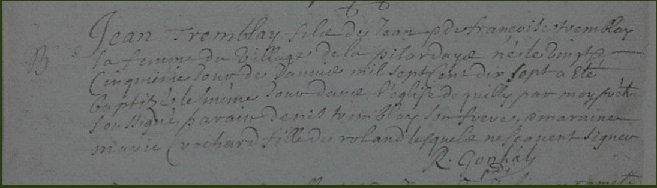 Jean Tremblay fils de Jean & de françoise tremblay
B
sa femme du village de la pilardaye né le vingt
Cinquième Jour de Janvier mil sept Cent dix sept a été
baptizé le même Jour dans l'église de quilly par moy prêtre
soussigné parain denis tremblay son frere, & maraine
marie Crochard fille de roland lesquels ne sçavent signer
R. Gouhal